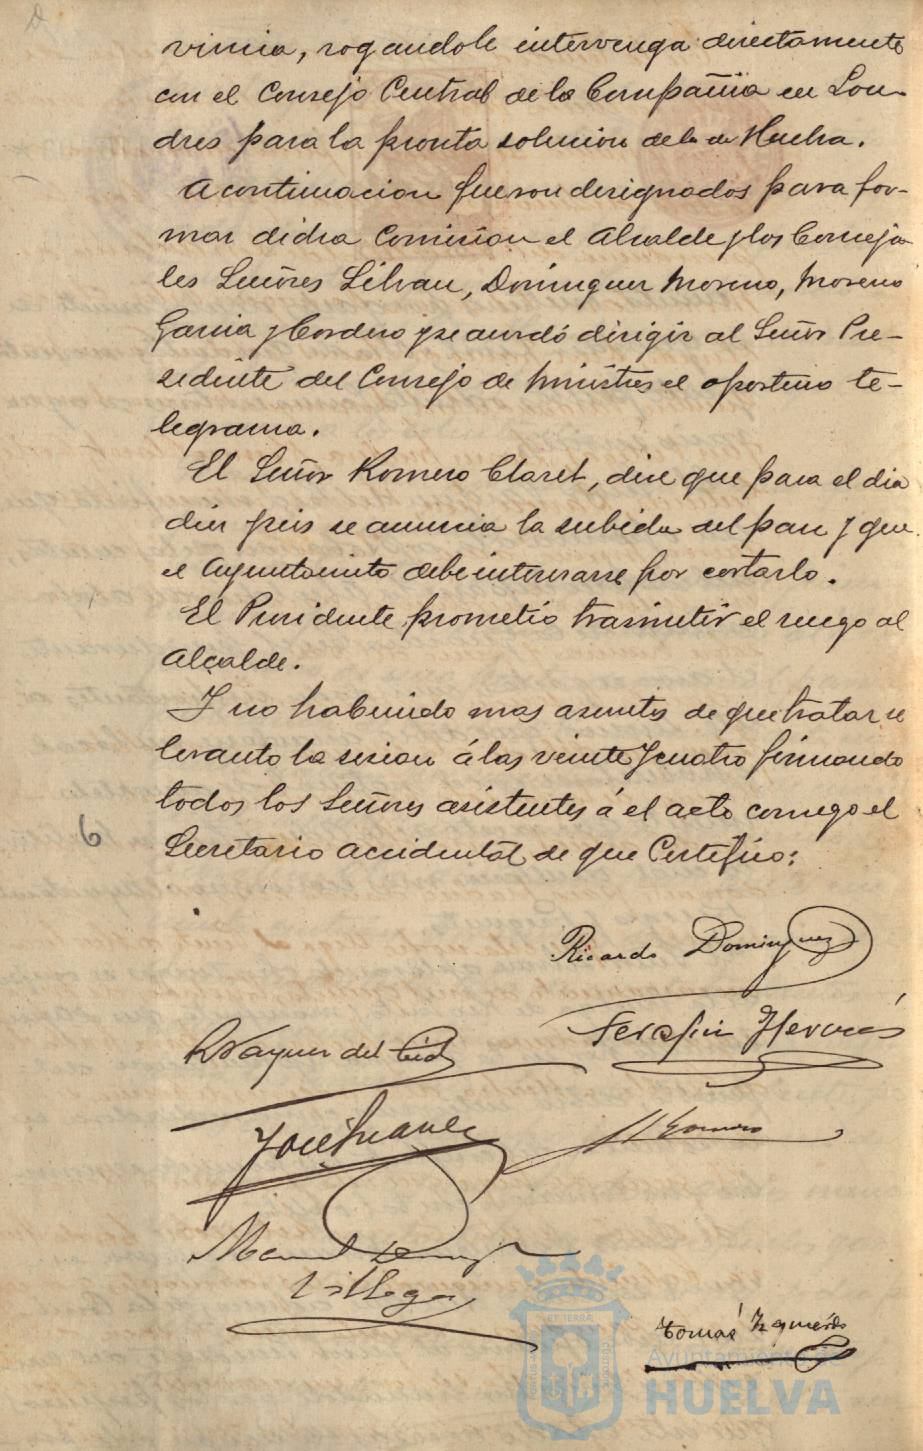 vincia, rogandole intervenga directamente
con el Consejo Central de la Compañia en Lon-
dres para la pronta solucion de la de Huelva.
Acontinuacion fueron designados para for-
mar dicha Comision el Alcalde y los Conceja
les Señores Silvan, Dominguez Moreno, Moreno
Garcia y Cordero y se acordó dirigir al Señor Pre-
sidente del Consejo de Ministros el oportuno te-
legrama.
El Señor Romero Claret, dice que para el dia
diez y seis se anuncia la subida del pan y que
el Ayuntamiento debe interesarse por cortarlo.
El Presidente prometio trasmitir el ruego al
Alcalde.
Y no habiendo mas asuntos de que tratar se
levanto la sesion á las veinte y cuatro firmando
todos los Señores asistentes á el acto conmigo el
6
Secretario accidental de que Certifico:
Ricardo Dominguez
Serafin
R Vazquez del Cid
José Suarez
Romero
Manuel
Villegas
Tomás Izquierdo
Ayuntamiento de
HUELVA